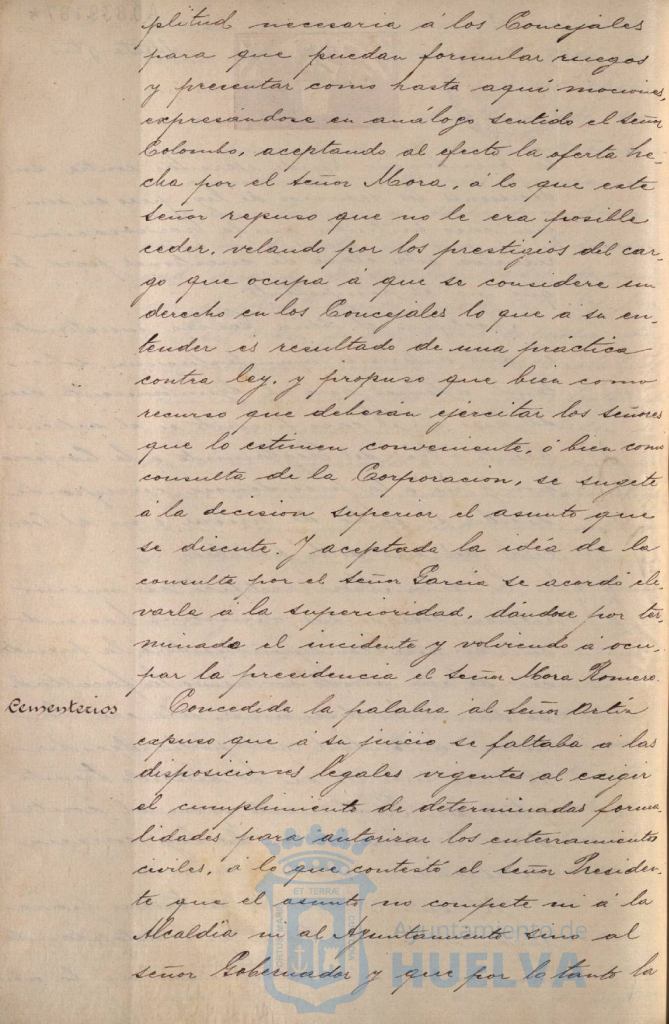 plitud necesaria á los Concejales
para que puedan formular ruegos
y presentar como hasta aquí mociones,
expresándose en análogo sentido el señor
Colombo, aceptando al efecto la oferta he-
cha por el señor Mora, á lo que este
señor repuso que no le era posible
ceder, velando por los prestigios del car-
go que ocupa á que se considere un
derecho en los Concejales lo que á su en-
tender es resultado de una práctica
contra ley, y propuso que bien como
recurso que deberán ejercitar los señores
que lo estimen conveniente, ó bien como
consulta de la Corporacion, se sugete
á la decision superior el asunto que
se discute. Y aceptada la idéa de la
consulta por el señor Garcia se acordó ele-
varla á la superioridad, dándose por ter-
minado el incidente y volviendo á ocu-
par la presidencia el señor Mora Romero.
Cementerios
Concedida la palabra al señor Ortíz
expuso que á su juicio se faltaba á las
disposiciones legales vigentes al exigir
el cumplimiento de determinadas forma-
lidades para autorizar los enterramientos
civiles, á lo que contestó el señor Presiden-
te que el asunto no compete ni á la
Alcaldia ni al Ayuntamiento sino al
señor Gobernador y que por lo tanto la
Ayuntamiento de
HUELVA